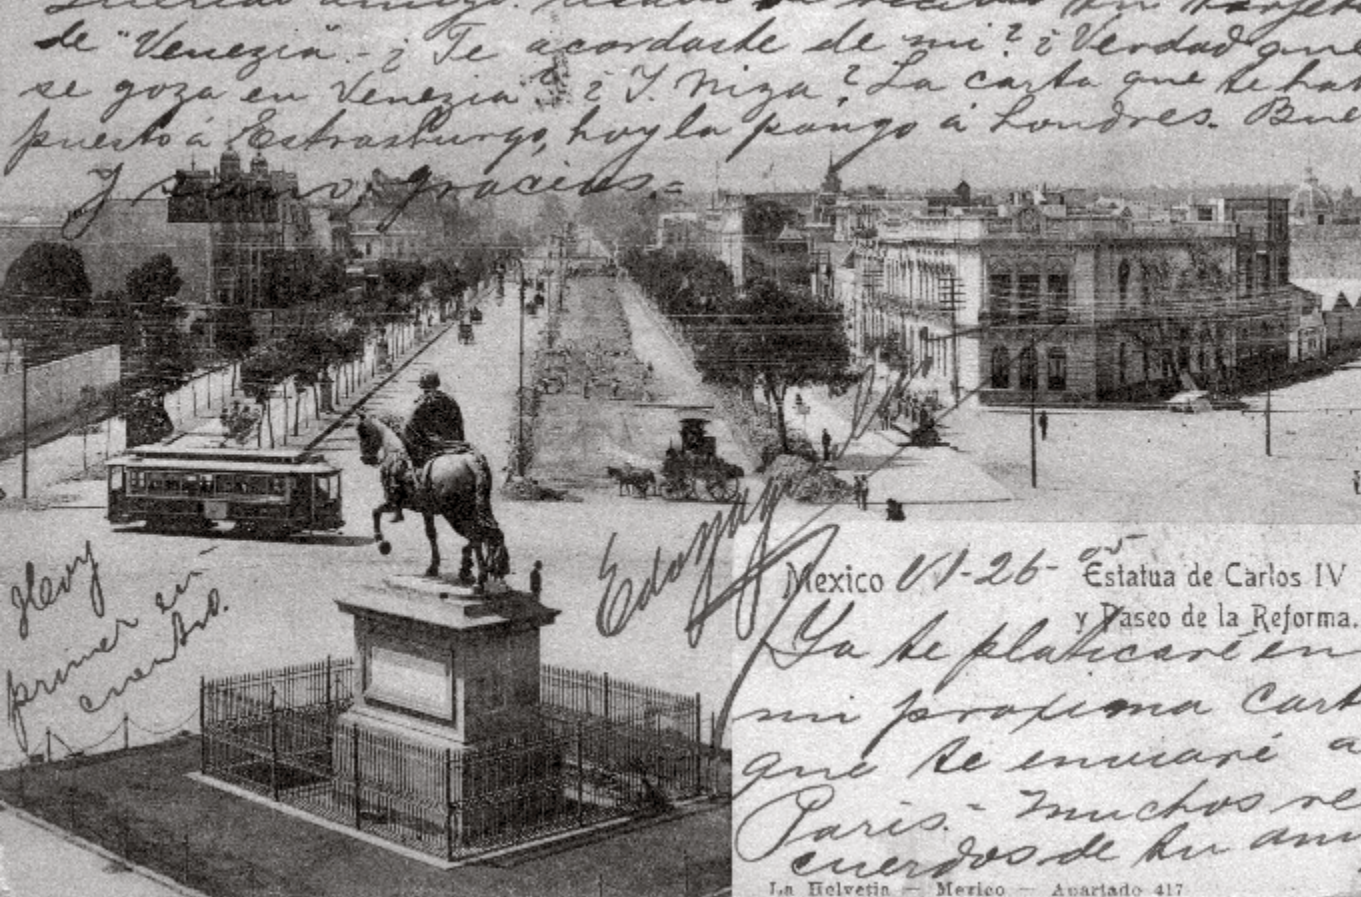 de "Venezia" - ¿ Te acordaste de mi? ¿ Verdad que
se goza en Venezia? ¿ Y. Niza? La carta que te hab
puesto á Estrasburgo, hoy la pongo á Londres. Bue
Y gracias =
Hoy
primer en
cuentro.
Mexico VI-26-05 Estatua de Carlos IV
y Paseo de la Reforma.
Ya te platicaré en
mi proxima cart
que te enviaré a
Paris. - Muchos re
cuerdos de tu ami
La Helvetia — Mexico — Apartado 417